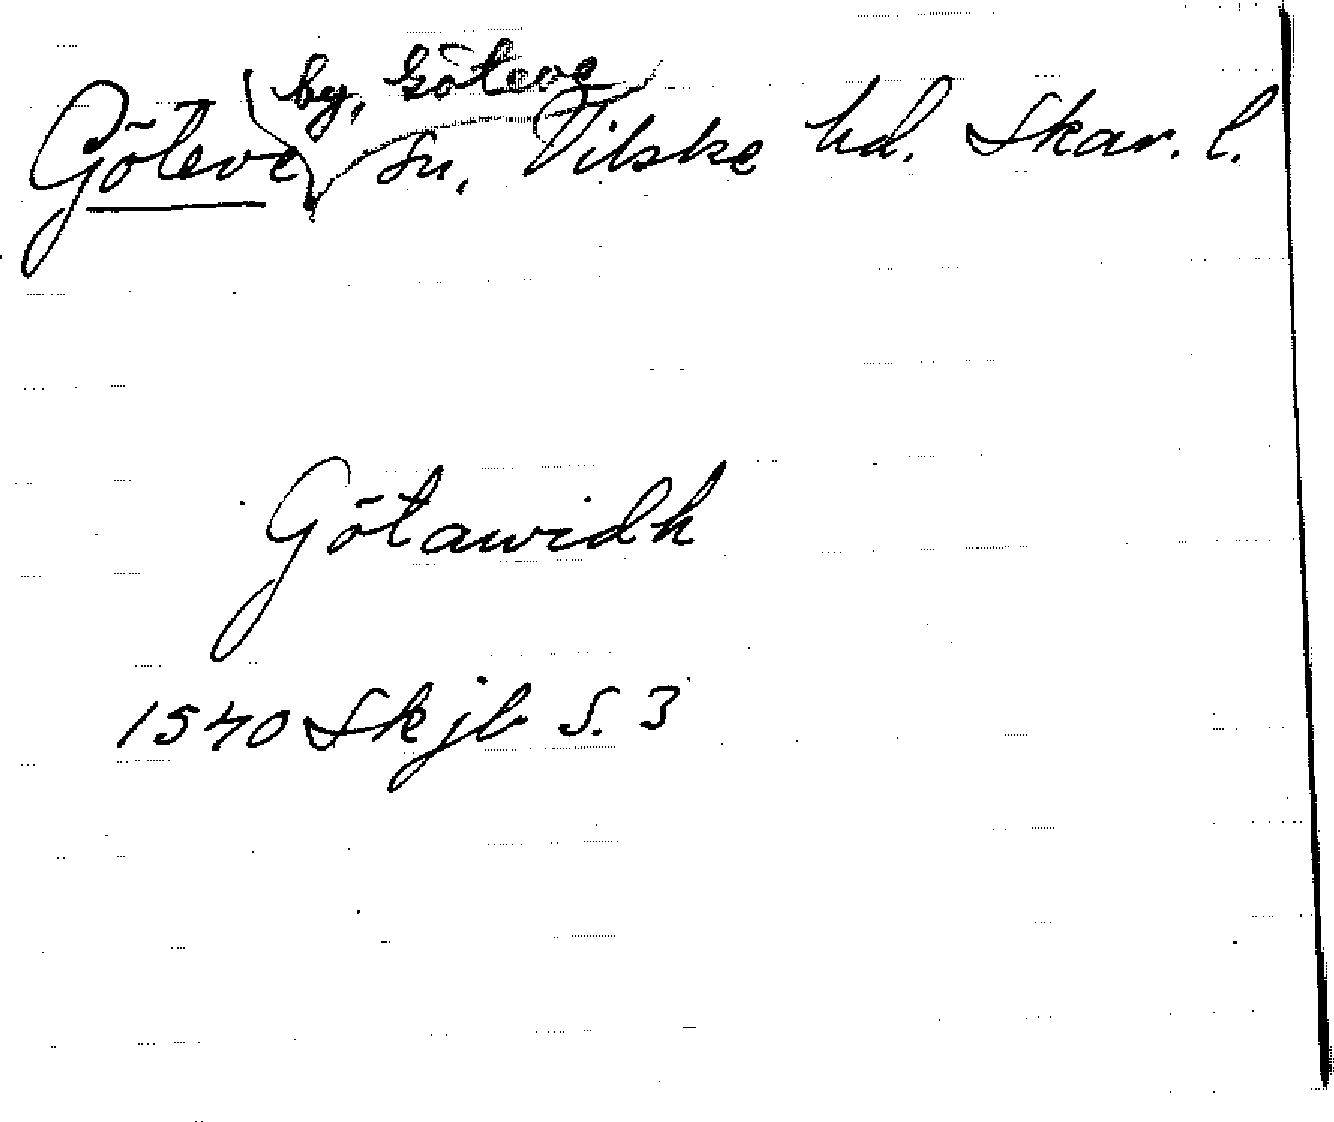 Göteve by, Göteve sn, Vilske hd. Skar. l.
Götawidh
1540 Skjb S. 3